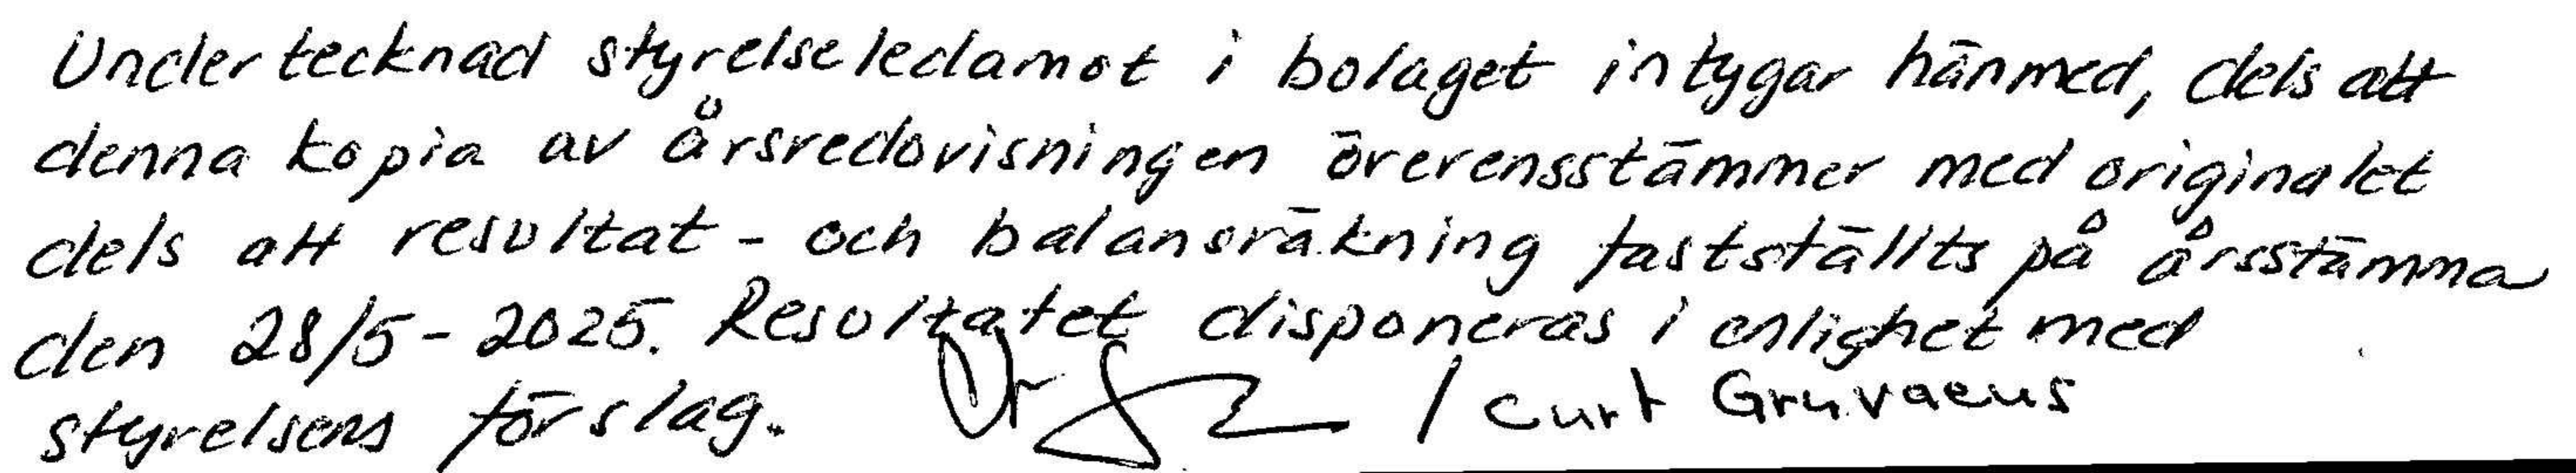 Undertecknad styrelseledamot i bolaget intygar hänmed, dels att
denna kopia av årsredovisningen överensstämmer med originalet
dels att resultat - och balansräkning fastställts på årsstämma
den 28/5-2025. Resultatet disponeras i enlighet med
styrelsens förslag. / Curt Gruvaeus